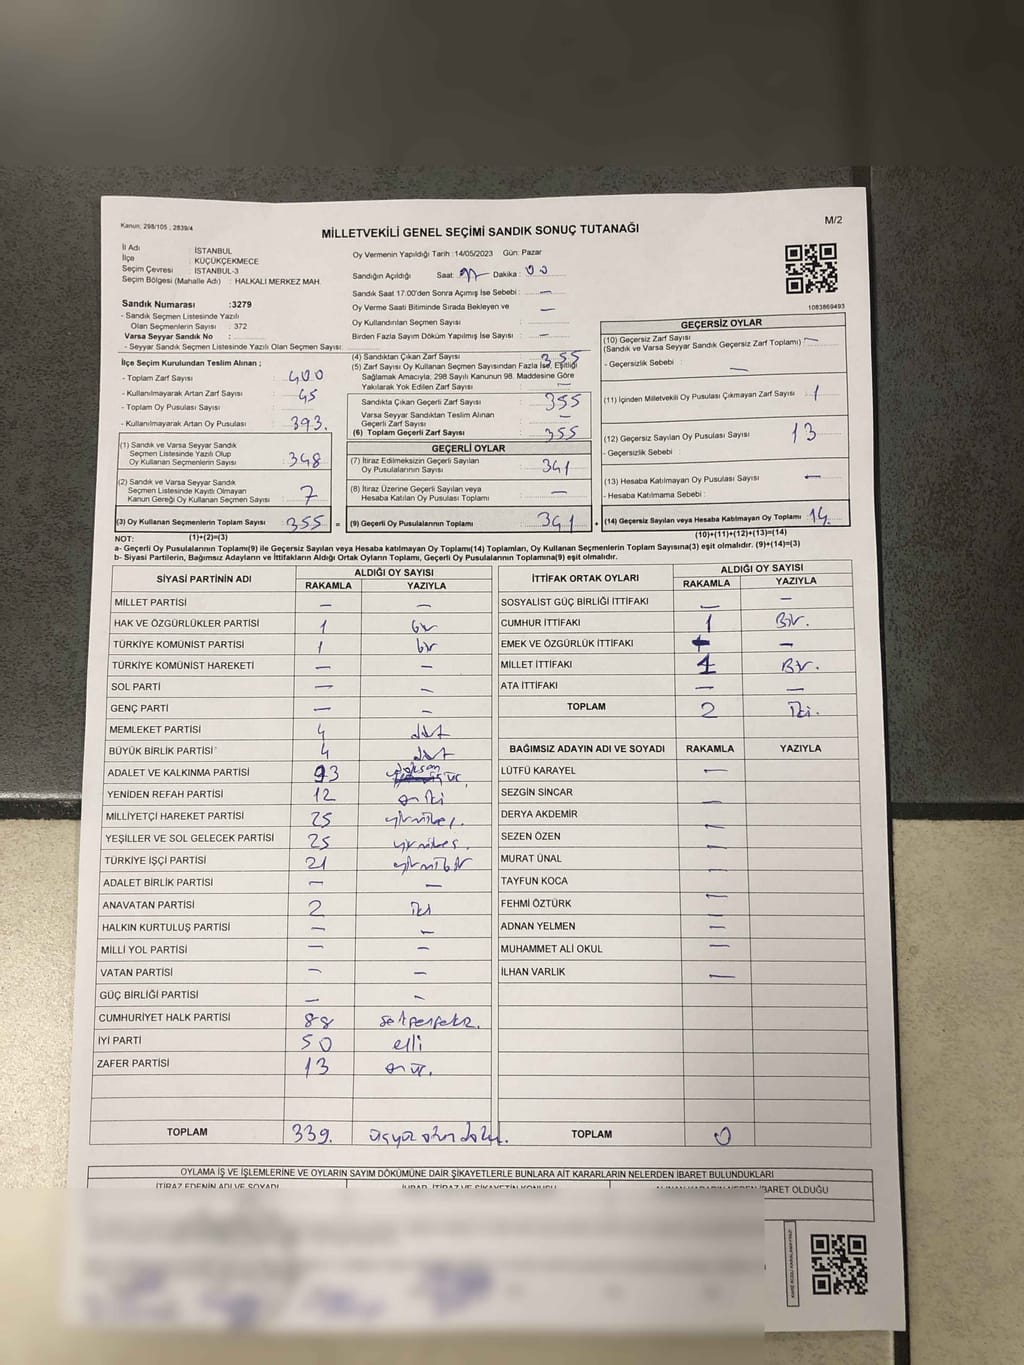 Kanun: 298/105 , 2839/4
M/2
MİLLETVEKİLİ GENEL SEÇİMİ SANDIK SONUÇ TUTANAĞI
İl Adı : İSTANBUL
İlçe : KÜÇÜKÇEKMECE
Seçim Çevresi : İSTANBUL-3
Seçim Bölgesi (Mahalle Adı) : HALKALI MERKEZ MAH.
Sandık Numarası :3279
- Sandık Seçmen Listesinde Yazılı
Olan Seçmenlerin Sayısı : 372
Varsa Seyyar Sandık No :
- Seyyar Sandık Seçmen Listesinde Yazılı Olan Seçmen Sayısı:
Oy Vermenin Yapıldığı Tarih :14/05/2023 Gün: Pazar
Sandığın Açıldığı Saat: Dakika : 00
Sandık Saat 17:00'den Sonra Açılmış İse Sebebi : —
Oy Verme Saati Bitiminde Sırada Bekleyen ve —
Oy Kullandırılan Seçmen Sayısı :
Birden Fazla Sayım Döküm Yapılmış İse Sayısı : —
1083869493
İlçe Seçim Kurulundan Teslim Alınan ;
- Toplam Zarf Sayısı : 400
- Kullanılmayarak Artan Zarf Sayısı : 45
- Toplam Oy Pusulası Sayısı :
- Kullanılmayarak Artan Oy Pusulası : 393.
(1) Sandık ve Varsa Seyyar Sandık
Seçmen Listesinde Yazılı Olup
Oy Kullanan Seçmenlerin Sayısı : 348
(2) Sandık ve Varsa Seyyar Sandık
Seçmen Listesinde Kayıtlı Olmayan
Kanun Gereği Oy Kullanan Seçmen Sayısı : 7
(3) Oy Kullanan Seçmenlerin Toplam Sayısı : 355 =
(4) Sandıktan Çıkan Zarf Sayısı : 355
(5) Zarf Sayısı Oy Kullanan Seçmen Sayısından Fazla İse, Eşitliği
Sağlamak Amacıyla, 298 Sayılı Kanunun 98. Maddesine Göre
Yakılarak Yok Edilen Zarf Sayısı : —
Sandıkta Çıkan Geçerli Zarf Sayısı : 355
Varsa Seyyar Sandıktan Teslim Alınan
Geçerli Zarf Sayısı : —
(6) Toplam Geçerli Zarf Sayısı : 355
GEÇERLİ OYLAR
(7) İtiraz Edilmeksizin Geçerli Sayılan
Oy Pusulalarının Sayısı : 341
(8) İtiraz Üzerine Geçerli Sayılan veya
Hesaba Katılan Oy Pusulası Toplamı : —
(9) Geçerli Oy Pusulalarının Toplamı : 341 +
GEÇERSİZ OYLAR
(10) Geçersiz Zarf Sayısı
(Sandık ve Varsa Seyyar Sandık Geçersiz Zarf Toplamı) : —
- Geçersizlik Sebebi : —
(11) İçinden Milletvekili Oy Pusulası Çıkmayan Zarf Sayısı : 1
(12) Geçersiz Sayılan Oy Pusulası Sayısı : 13
- Geçersizlik Sebebi :
(13) Hesaba Katılmayan Oy Pusulası Sayısı : —
- Hesaba Katılmama Sebebi :
(14) Geçersiz Sayılan veya Hesaba Katılmayan Oy Toplamı : 14.
NOT: (1)+(2)=(3)
(10)+(11)+(12)+(13)=(14)
a- Geçerli Oy Pusulaları Toplamı(9) ile Geçersiz Sayılan veya Hesaba katılmayan Oy Toplamı(14) Toplamları, Oy Kullanan Seçmenlerin Toplam Sayısına(3) eşit olmalıdır. (9)+(14)=(3)
b- Siyasi Partilerin, Bağımsız Adayların ve İttifakların Aldığı Ortak Oyların Toplamı, Geçerli Oy Pusulalarının Toplamına(9) eşit olmalıdır.
SİYASİ PARTİNİN ADI ALDIĞI OY SAYISI
RAKAMLA YAZIYLA
MİLLET PARTİSİ — —
HAK VE ÖZGÜRLÜKLER PARTİSİ 1 bir
TÜRKİYE KOMÜNİST PARTİSİ 1 bir
TÜRKİYE KOMÜNİST HAREKETİ — —
SOL PARTİ — —
GENÇ PARTİ — —
MEMLEKET PARTİSİ 4 dört
BÜYÜK BİRLİK PARTİSİ 4 dört
ADALET VE KALKINMA PARTİSİ 93
YENİDEN REFAH PARTİSİ 12 on iki
MİLLİYETÇİ HAREKET PARTİSİ 25 yirmibeş.
YEŞİLLER VE SOL GELECEK PARTİSİ 25 yirmibeş.
TÜRKİYE İŞÇİ PARTİSİ 21 yirmibir
ADALET BİRLİK PARTİSİ — —
ANAVATAN PARTİSİ 2 iki
HALKIN KURTULUŞ PARTİSİ — —
MİLLİ YOL PARTİSİ — —
VATAN PARTİSİ — —
GÜÇ BİRLİĞİ PARTİSİ — —
CUMHURİYET HALK PARTİSİ 88 seksensekiz.
İYİ PARTİ 50 elli
ZAFER PARTİSİ 13 on üç.
TOPLAM 339. üçyüz otuz dokuz.
İTTİFAK ORTAK OYLARI ALDIĞI OY SAYISI
RAKAMLA YAZIYLA
SOSYALİST GÜÇ BİRLİĞİ İTTİFAKI — —
CUMHUR İTTİFAKI 1 Bir.
EMEK VE ÖZGÜRLÜK İTTİFAKI — —
MİLLET İTTİFAKI 1 Bir.
ATA İTTİFAKI — —
TOPLAM 2 İki.
BAĞIMSIZ ADAYIN ADI VE SOYADI RAKAMLA YAZIYLA
LÜTFÜ KARAYEL —
SEZGİN SİNCAR —
DERYA AKDEMİR —
SEZEN ÖZEN —
MURAT ÜNAL
TAYFUN KOCA —
FEHMİ ÖZTÜRK —
ADNAN YELMEN —
MUHAMMET ALİ OKUL —
İLHAN VARLIK —
TOPLAM 0
OYLAMA İŞ VE İŞLEMLERİNE VE OYLARIN SAYIM DÖKÜMÜNE DAİR ŞİKAYETLERLE BUNLARA AİT KARARLARIN NELERDEN İBARET BULUNDUKLARI
İTİRAZ EDENİN ADI VE SOYADI
İBARET OLDUĞU